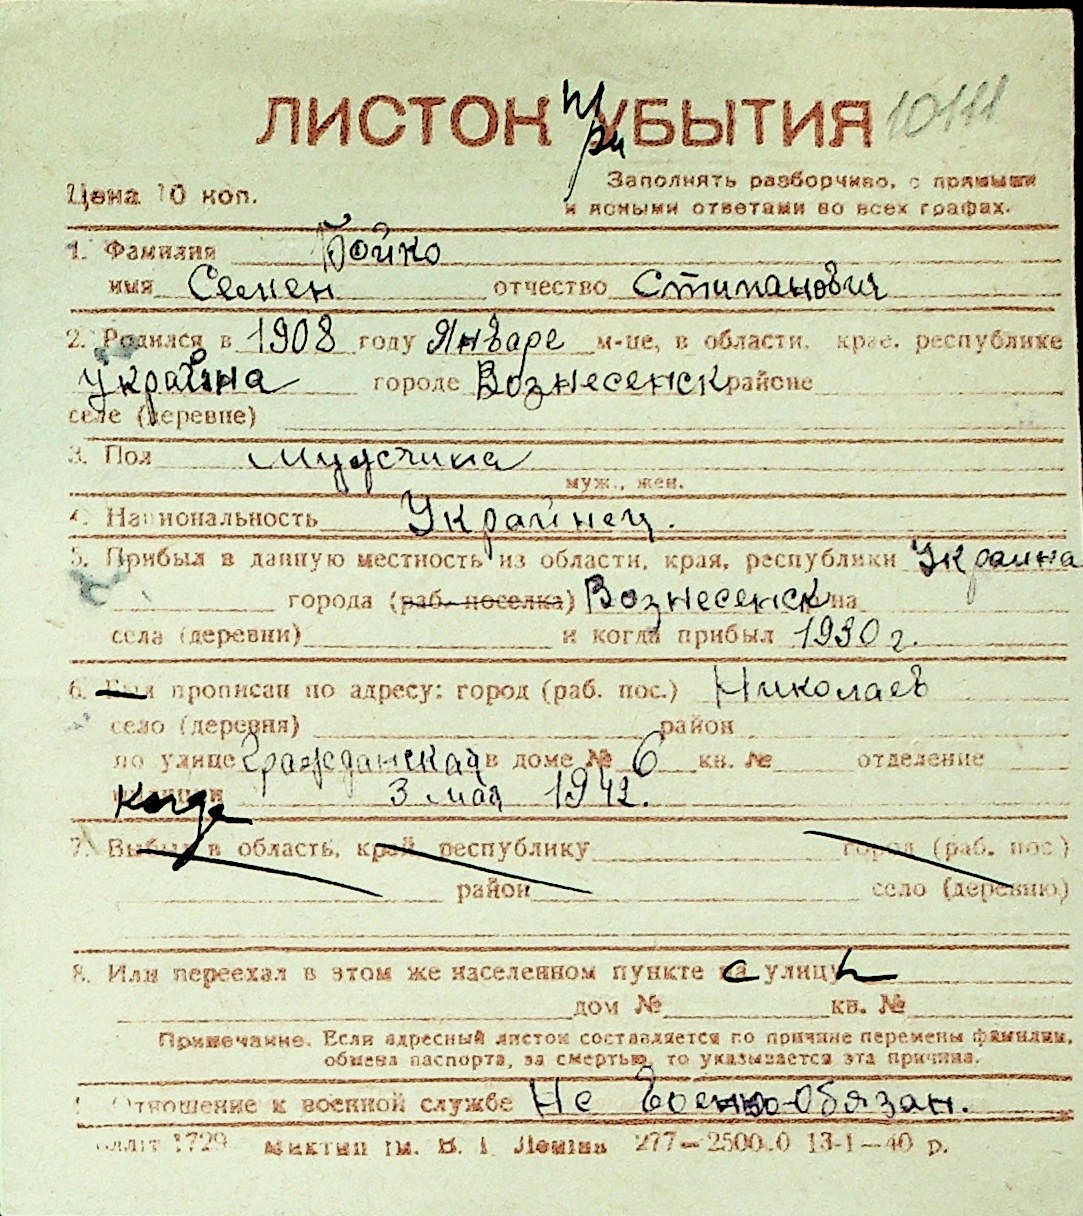 ЛИСТОК приБЫТИЯ 10111
Цена 10 коп.
Заполнять разборчиво, с прямыми
и ясными ответами во всех графах.
1. Фамилия Бойко
имя Семен отчество Стипанович
2. Родился в 1908 году Январе м-це, в области, крае, республике
Украина городе Вознесенск районе
селе (деревне)
3. Пол мущина
муж., жен.
4. Национальность Украинец.
5. Прибыл в данную местность из области, края, республики Украина
города (раб. поселка) Вознесенск на
села (деревни) и когда прибыл 1930 г.
6. Был прописан по адресу: город (раб. пос.) Николаев
село (деревня) район
по улице Гражданская в доме № 6 кв. № отделение
когда 3 мая 1942.
7. Выбыл в область, край, республику город (раб. пос.)
район село (деревню)
8. Или переехал в этом же населенном пункте с улицы
дом № кв. №
Примечание. Если адресный листок составляется по причине перемены фамилии,
обмена паспорта, за смертью, то указывается эта причина.
Отношение к военной службе Не военно-обязан.
1729 Миктип ім. В. І. Леніна 277—2500.0 13-1—40 р.